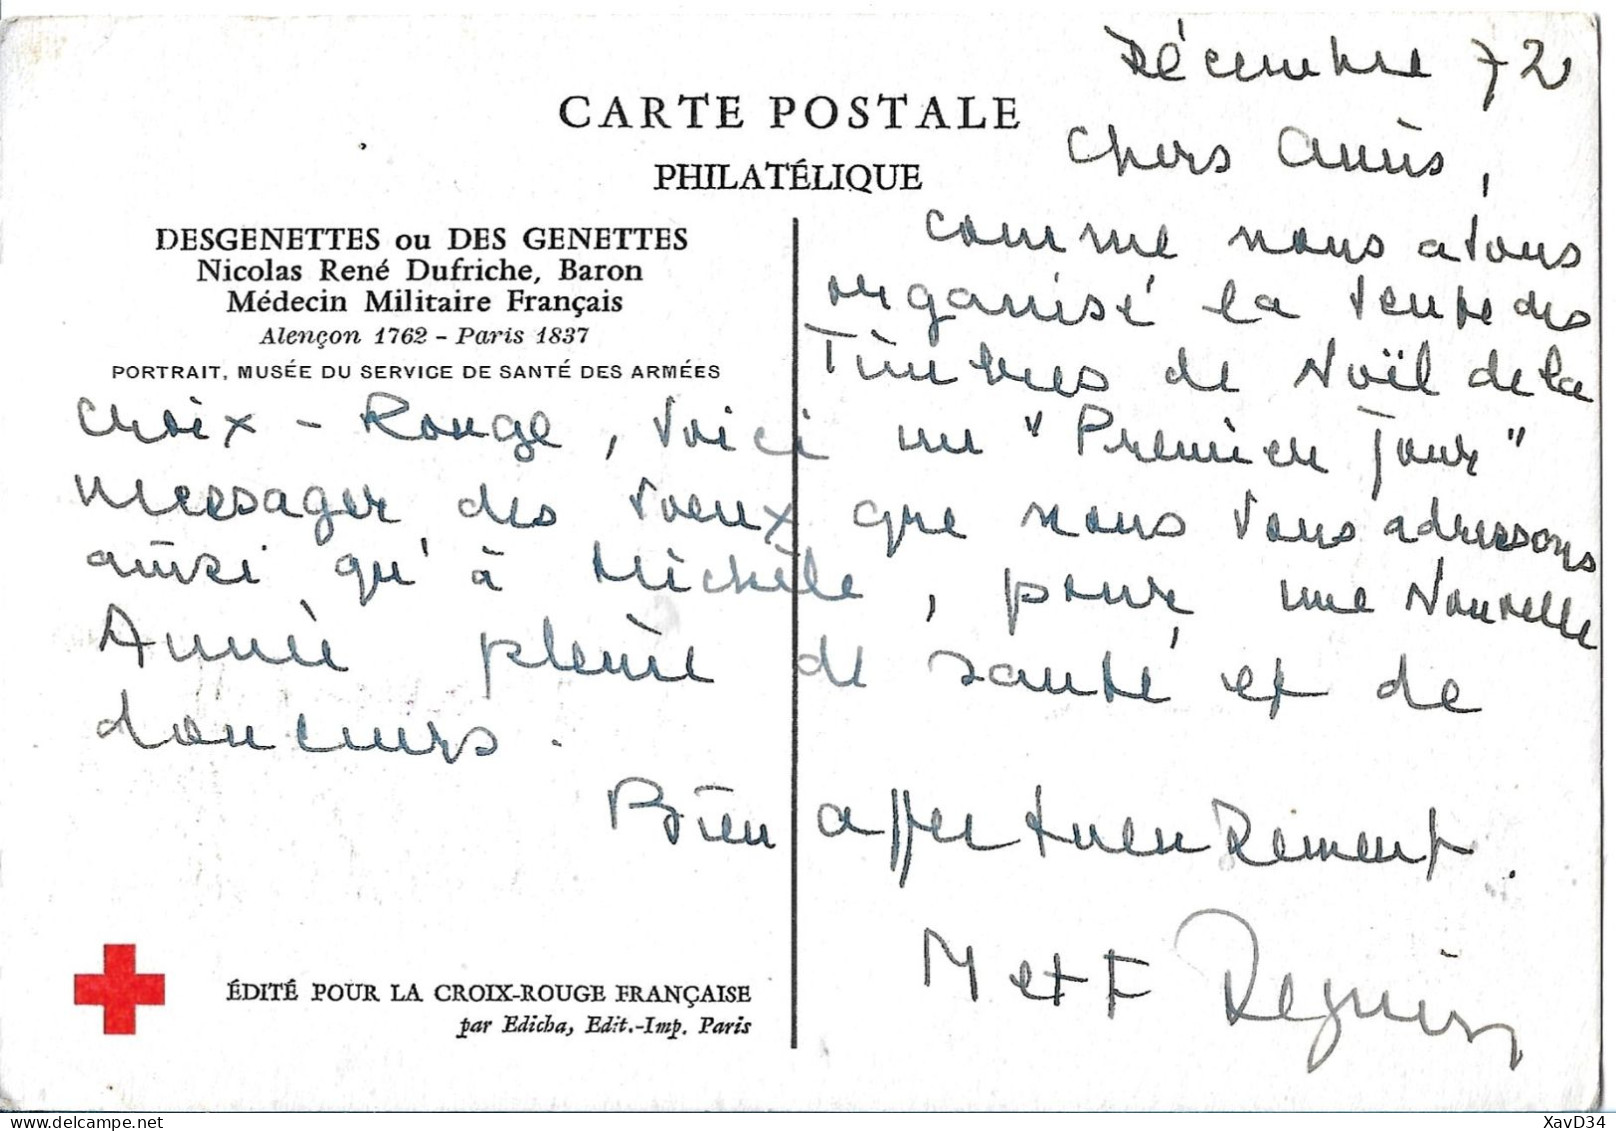 Décembre 72
CARTE POSTALE
PHILATÉLIQUE
DESGENETTES ou DES GENETTES
Nicolas René Dufriche, Baron
Médecin Militaire Français
Alençon 1762 - Paris 1837
PORTRAIT, MUSÉE DU SERVICE DE SANTÉ DES ARMÉES
Chers Amis,
comme nous avons
organisé la vente des
Timbres de Noël de la
Croix-Rouge, voici un "Premier Jour"
messager des voeux que nous vous adressons
ainsi qu'à Michèle, pour une Nouvelle
Année pleine de santé et de
douceurs.
Bien affectueusement.
M et F
ÉDITÉ POUR LA CROIX-ROUGE FRANÇAISE
par Edicha, Edit.-Imp. Paris
delcampe.net
XavD34